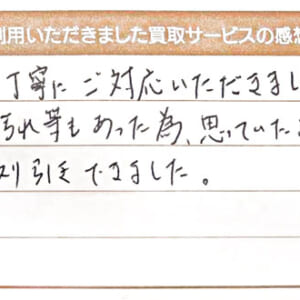 利用いただきました買取サービスの感想
丁寧にご対応いただきまし
汚れ等もあった為、思っていた
取り引きできました。